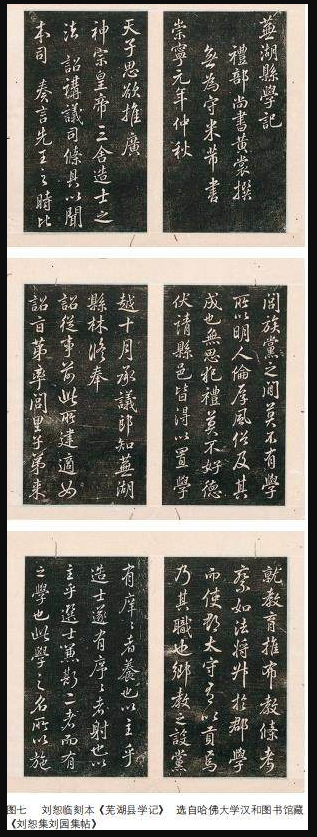 蕪湖縣學記
禮部尚書黃裳撰
無為守米芾書
崇寧元年仲秋
天子思欲推廣
神宗皇帝三舍造士之
法詔講議司條具以聞
本司奏言先王之時比
閭族黨之間莫不有學
所以明人倫厚風俗及其
成也無思犯禮莫不好德
伏請縣邑皆得以置學
越十月承議郎知蕪湖
縣林修奉
詔從事前此所建適如
詔旨第率閭里子弟來
就教育推布教條考
察如法將升於郡學
而使郡太守有以貢焉
乃其職也鄉教之設黨
有庠々者養也以主乎
造士遂有序々者射也以
主乎選士兼斯二者而有
之學也此學之名所以施
图七 刘恕临刻本《芜湖县学记》 选自哈佛大学汉和图书馆藏
《刘恕集刘园集帖》